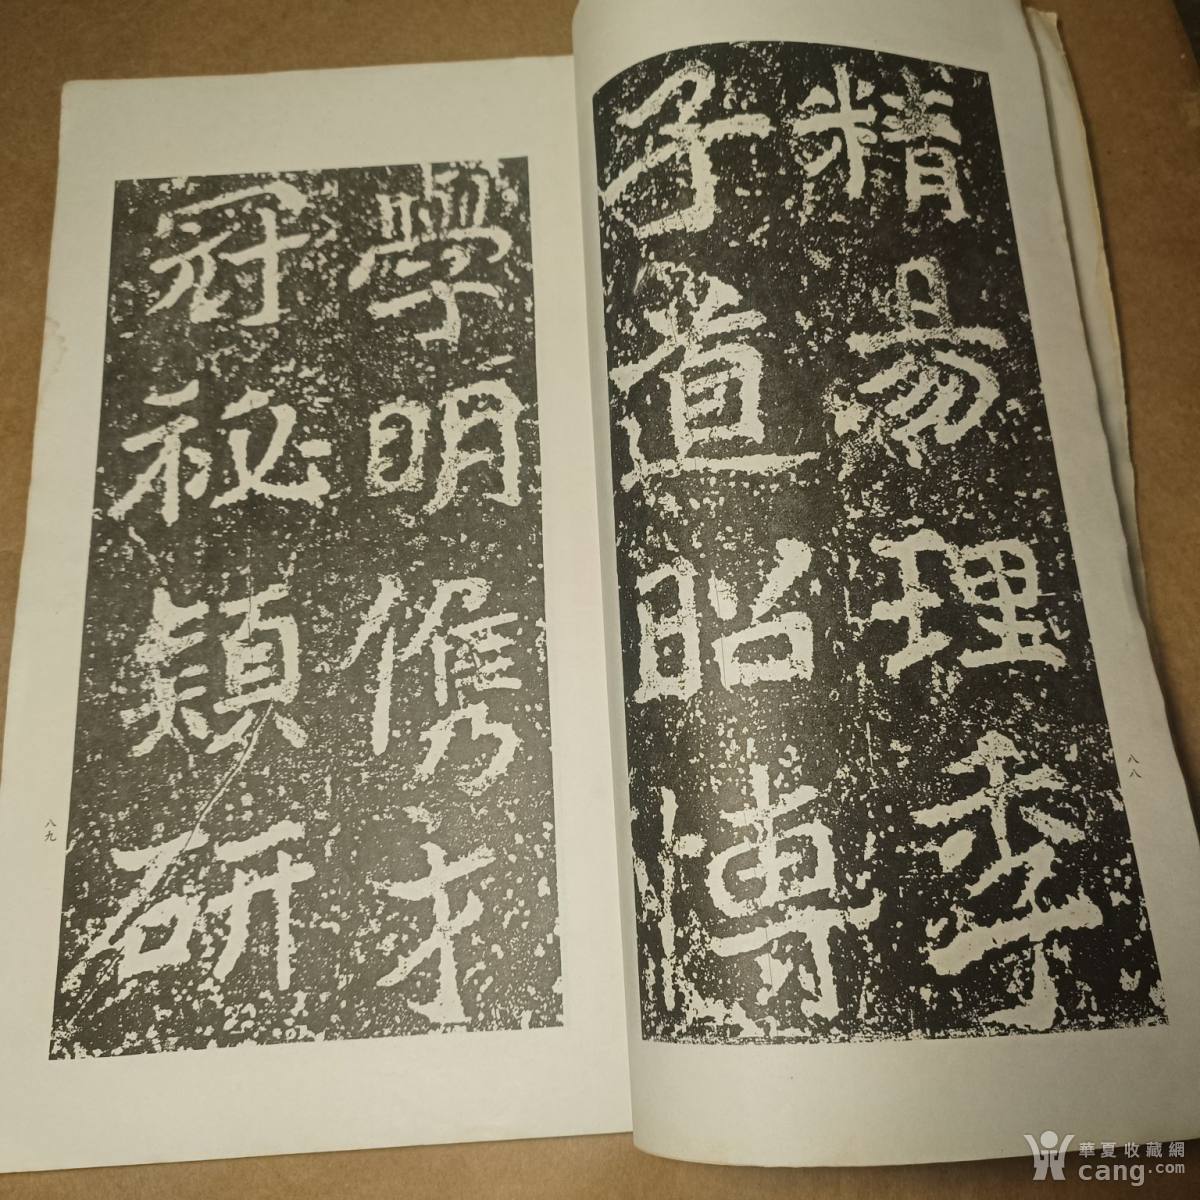 精易理季
子道昭博
八八
學明儁才
冠祕穎研
八九
華夏收藏網
cang.com